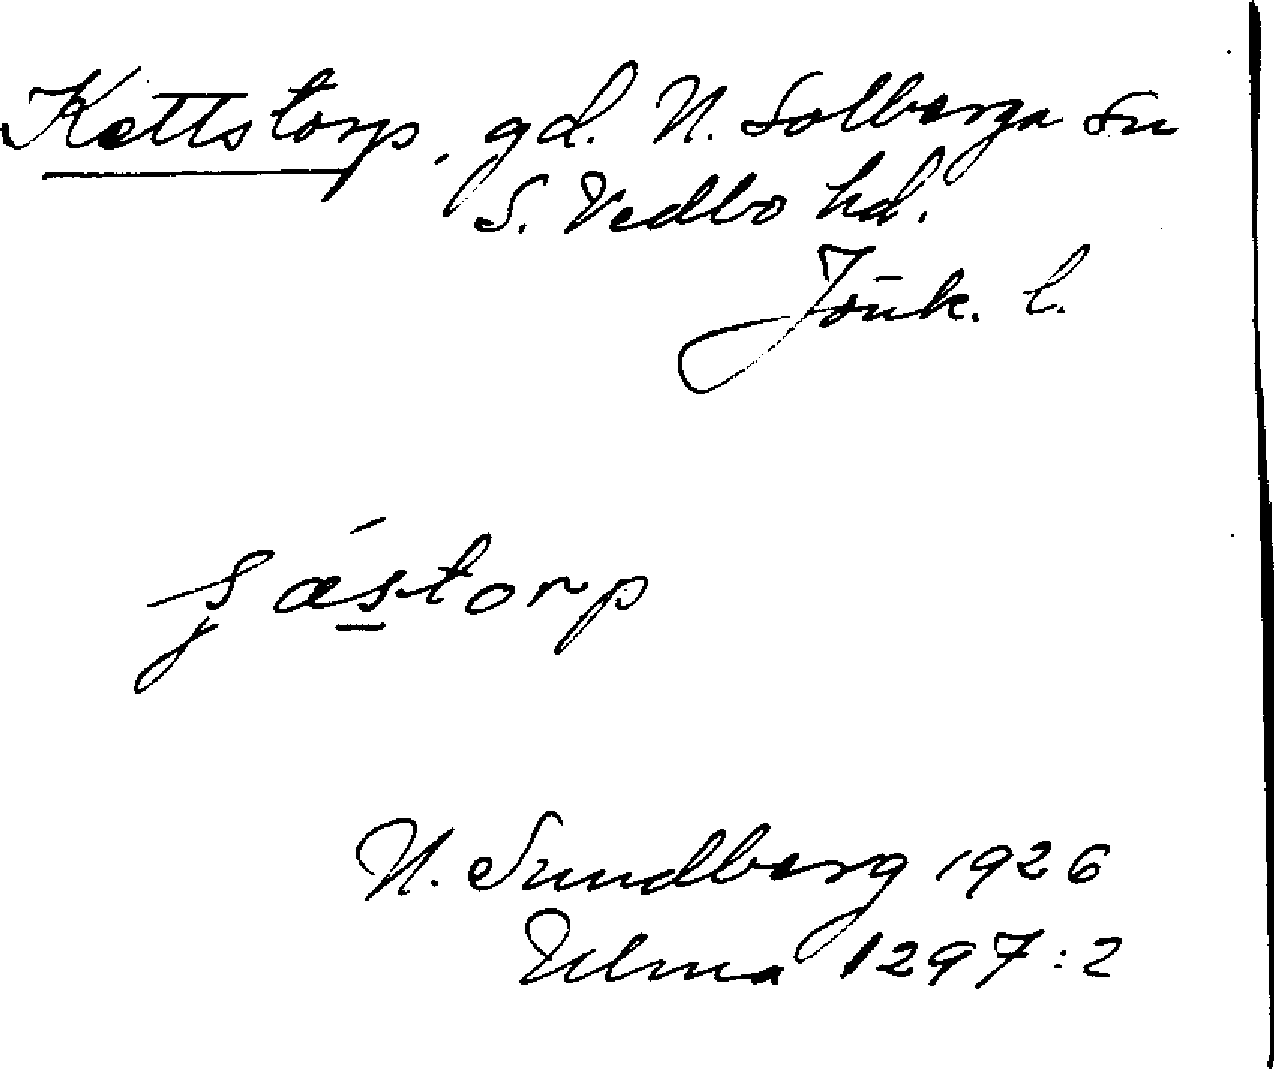 Kettstorp, gd. N. Solberga sn
S. Vedbo hd.
Jönk. l.
N. Sundberg 1926
Ulma 1297:2